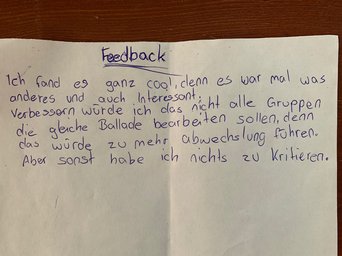 Feedback
Ich fand es ganz cool, denn es war mal was
anderes und auch Interessant.
Verbessern würde ich das nicht alle Gruppen
die gleiche Ballade bearbeiten sollen, denn
das würde zu mehr abwechslung führen.
Aber sonst habe ich nichts zu Kritieren.